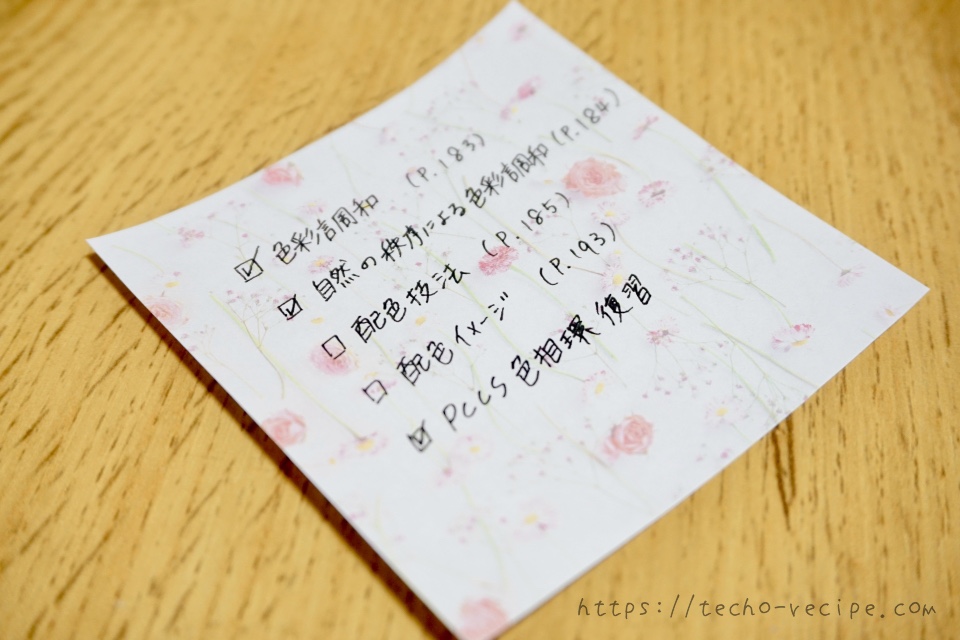 ☑ 色彩調和 (P.183)
☑ 自然の秩序による色彩調和 (P.184)
☐ 配色技法 (P.185)
☐ 配色イメージ (P.193)
☑ PCCS色相環復習
https://techo-recipe.com